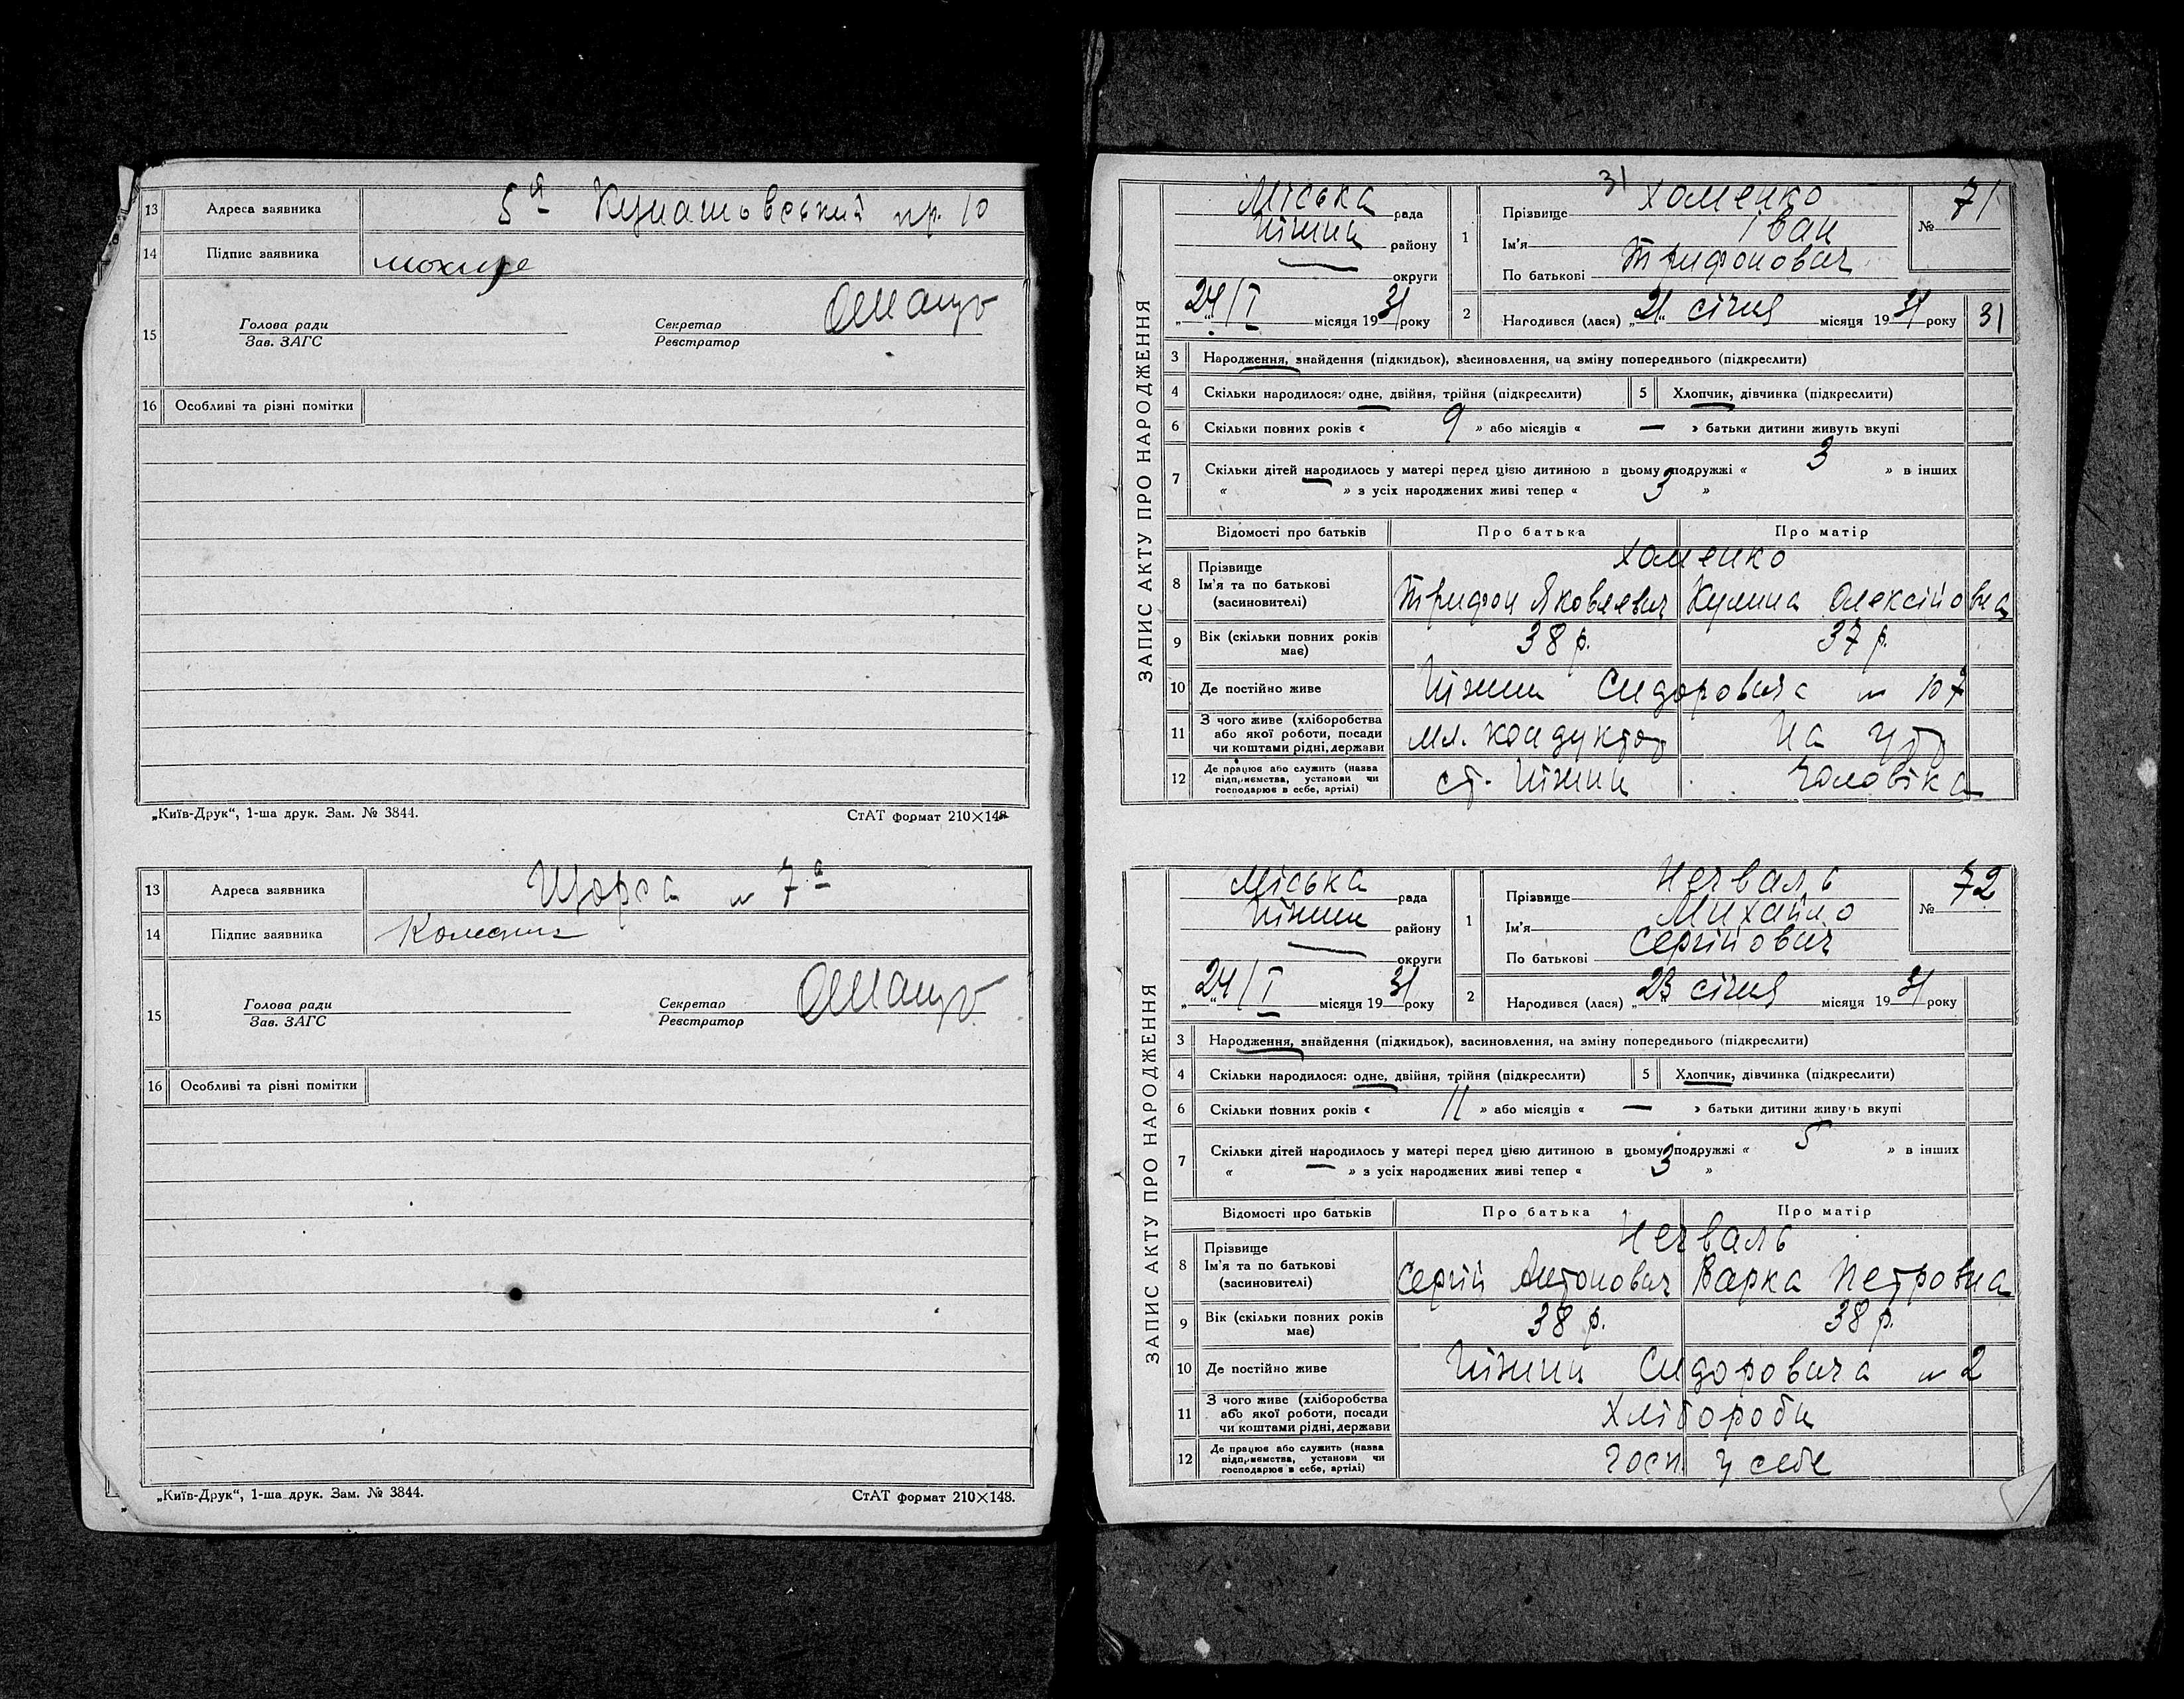 13 Адреса заявника 5й Кунашовський пр. 10
14 Підпис заявника
15 Голова ради Секретар
Зав. ЗАГС Реєстратор
16 Особливі та різні помітки
„Київ-Друк“, 1-ша друк. Зам. № 3844. СтАТ формат 210×148
13 Адреса заявника Щорса № 7а
14 Підпис заявника
15 Голова ради Секретар
Зав. ЗАГС Реєстратор
16 Особливі та різні помітки
„Київ-Друк“, 1-ша друк. Зам. № 3844. СтАТ формат 210×148.
31
ЗАПИС АКТУ ПРО НАРОДЖЕННЯ
Міська рада
Ніжин району
— округи
„24/I місяця 1931 року
1 Прізвище Хоменко
Ім'я Іван
По батькові Трифонович
№ 71
2 Народився (лася) „21“ січня місяця 1931 року 31
3 Народження, знайдення (підкидьок), засиновлення, на зміну попереднього (підкреслити)
4 Скільки народилося: одне, двійня, трійня (підкреслити) 5 Хлопчик, дівчинка (підкреслити)
6 Скільки повних років « 9 » або місяців « — » батьки дитини живуть вкупі
7 Скільки дітей народилось у матері перед цією дитиною в цьому подружжі « 3 » в інших
« — » з усіх народжених живі тепер « 3 »
Відомості про батьків Про батька Про матір
8 Прізвище Хоменко
Ім'я та по батькові
(засиновителі) Трифон Яковлевич Кулина Олексійовна
9 Вік (скільки повних років має) 38 р. 37 р.
10 Де постійно живе Ніжин Сидоровича № 107
11 З чого живе (хліборобства
або якої роботи, посади
чи коштами рідні, держави мл. кондуктор На утр
12 Де працює або служить (назва
підприємства, установи чи
господарює в себе, артілі) ст. Ніжин чоловіка
ЗАПИС АКТУ ПРО НАРОДЖЕННЯ
Міська рада
Ніжин району
— округи
„24/I місяця 1931 року
1 Прізвище Нечваль
Ім'я Михайло
По батькові Сергійович
№ 72
2 Народився (лася) „23“ січня місяця 1931 року
3 Народження, знайдення (підкидьок), засиновлення, на зміну попереднього (підкреслити)
4 Скільки народилося: одне, двійня, трійня (підкреслити) 5 Хлопчик, дівчинка (підкреслити)
6 Скільки повних років « 11 » або місяців « — » батьки дитини живуть вкупі
7 Скільки дітей народилось у матері перед цією дитиною в цьому подружжі « 5 » в інших
« — » з усіх народжених живі тепер « 3 »
Відомості про батьків Про батька Про матір
8 Прізвище Нечваль
Ім'я та по батькові
(засиновителі) Сергій Антонович Варка Петровна
9 Вік (скільки повних років має) 38 р. 38 р.
10 Де постійно живе Ніжин Сидоровича № 2
11 З чого живе (хліборобства
або якої роботи, посади
чи коштами рідні, держави Хлібороби
12 Де працює або служить (назва
підприємства, установи чи
господарює в себе, артілі) госп. у себе